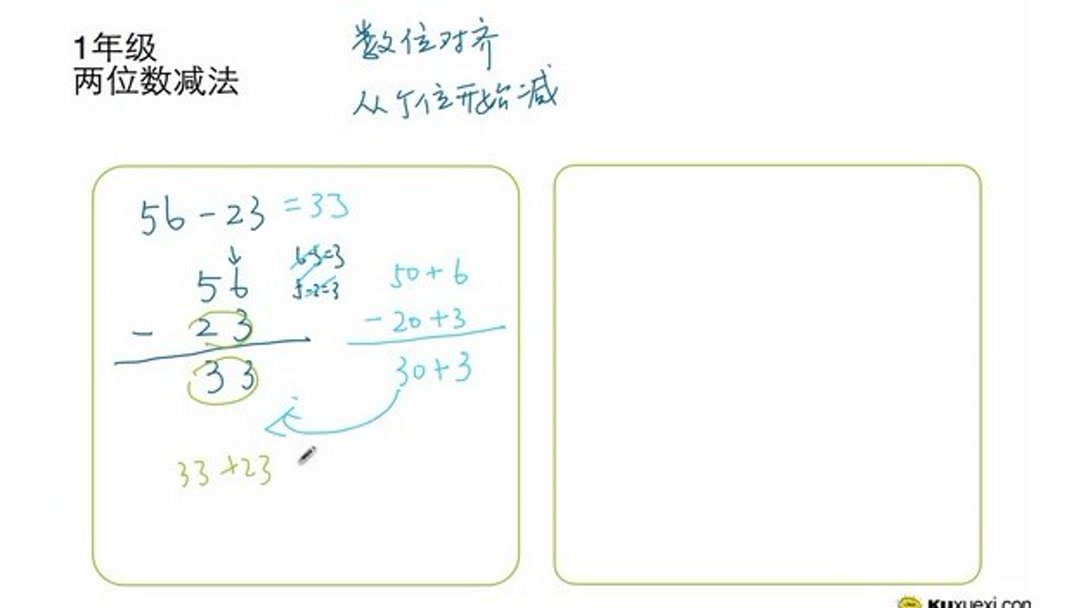 1年级
两位数减法
数位对齐
从个位开始减
56-23=33
56
-23
33
6-3=3
5-2=3
50+6
-20+3
30+3
33+23
kuxuexi.con